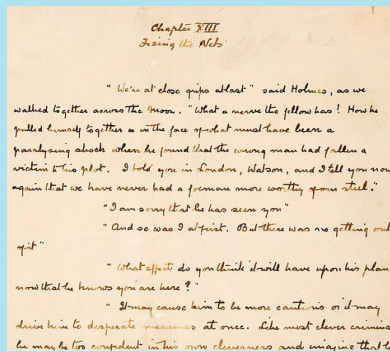 Chapter XIII
Fixing the Nets
"We're at close grips at last" said Holmes, as we
walked together across the moor. "What a nerve the fellow has! How he
pulled himself together in the face of what must have been a
paralysing shock when he found that the wrong man had fallen a
victim to his plot. I told you in London, Watson, and I tell you now
again that we have never had a foeman more worthy of our steel."
"I am sorry that he has seen you"
"And so was I at first. But there was no getting out
of it"
"What effect do you think it will have upon his plan
now that he knows you are here?"
"It may cause him to be more cautious or it may
drive him to desperate measures at once. Like most clever crimin
he may be too confident in his own cleverness and imagine that h